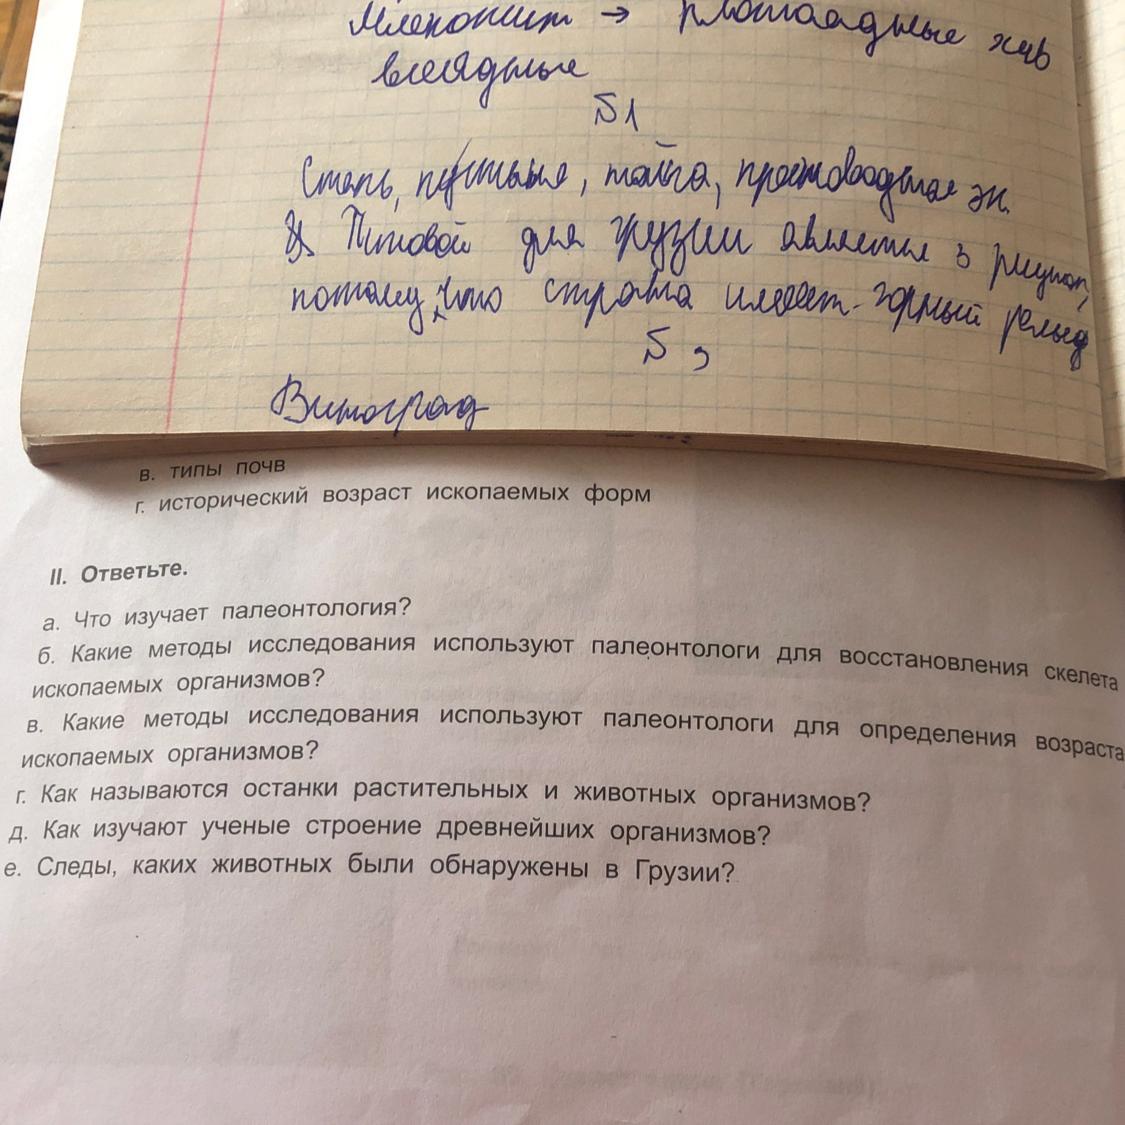 Млекопит → плотоядные хиб
всеядные
§1
Степь, пустыня, тайга, пресноводная эк.
Типовой для Грузии является 3 рисунок,
потому что страна имеет горный рельеф
§ 3
Виноград
в. типы почв
г. исторический возраст ископаемых форм
II. Ответьте.
а. Что изучает палеонтология?
б. Какие методы исследования используют палеонтологи для восстановления скелета
ископаемых организмов?
в. Какие методы исследования используют палеонтологи для определения возраста
ископаемых организмов?
г. Как называются останки растительных и животных организмов?
д. Как изучают ученые строение древнейших организмов?
е. Следы, каких животных были обнаружены в Грузии?